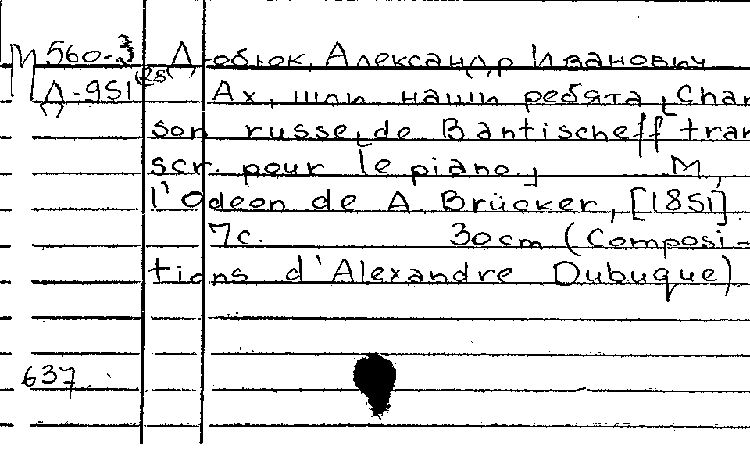 М 560-3 Дюбюк, Александр Иванович
Д-951 Ах, шли наши ребята, Chan
son russe, de Bantischeff tran
scr. pour le piano., M,
l'Odeon de A Brücker, [1851].
7с. 30cm (Composi-
tions d'Alexandre Dubuque)
637